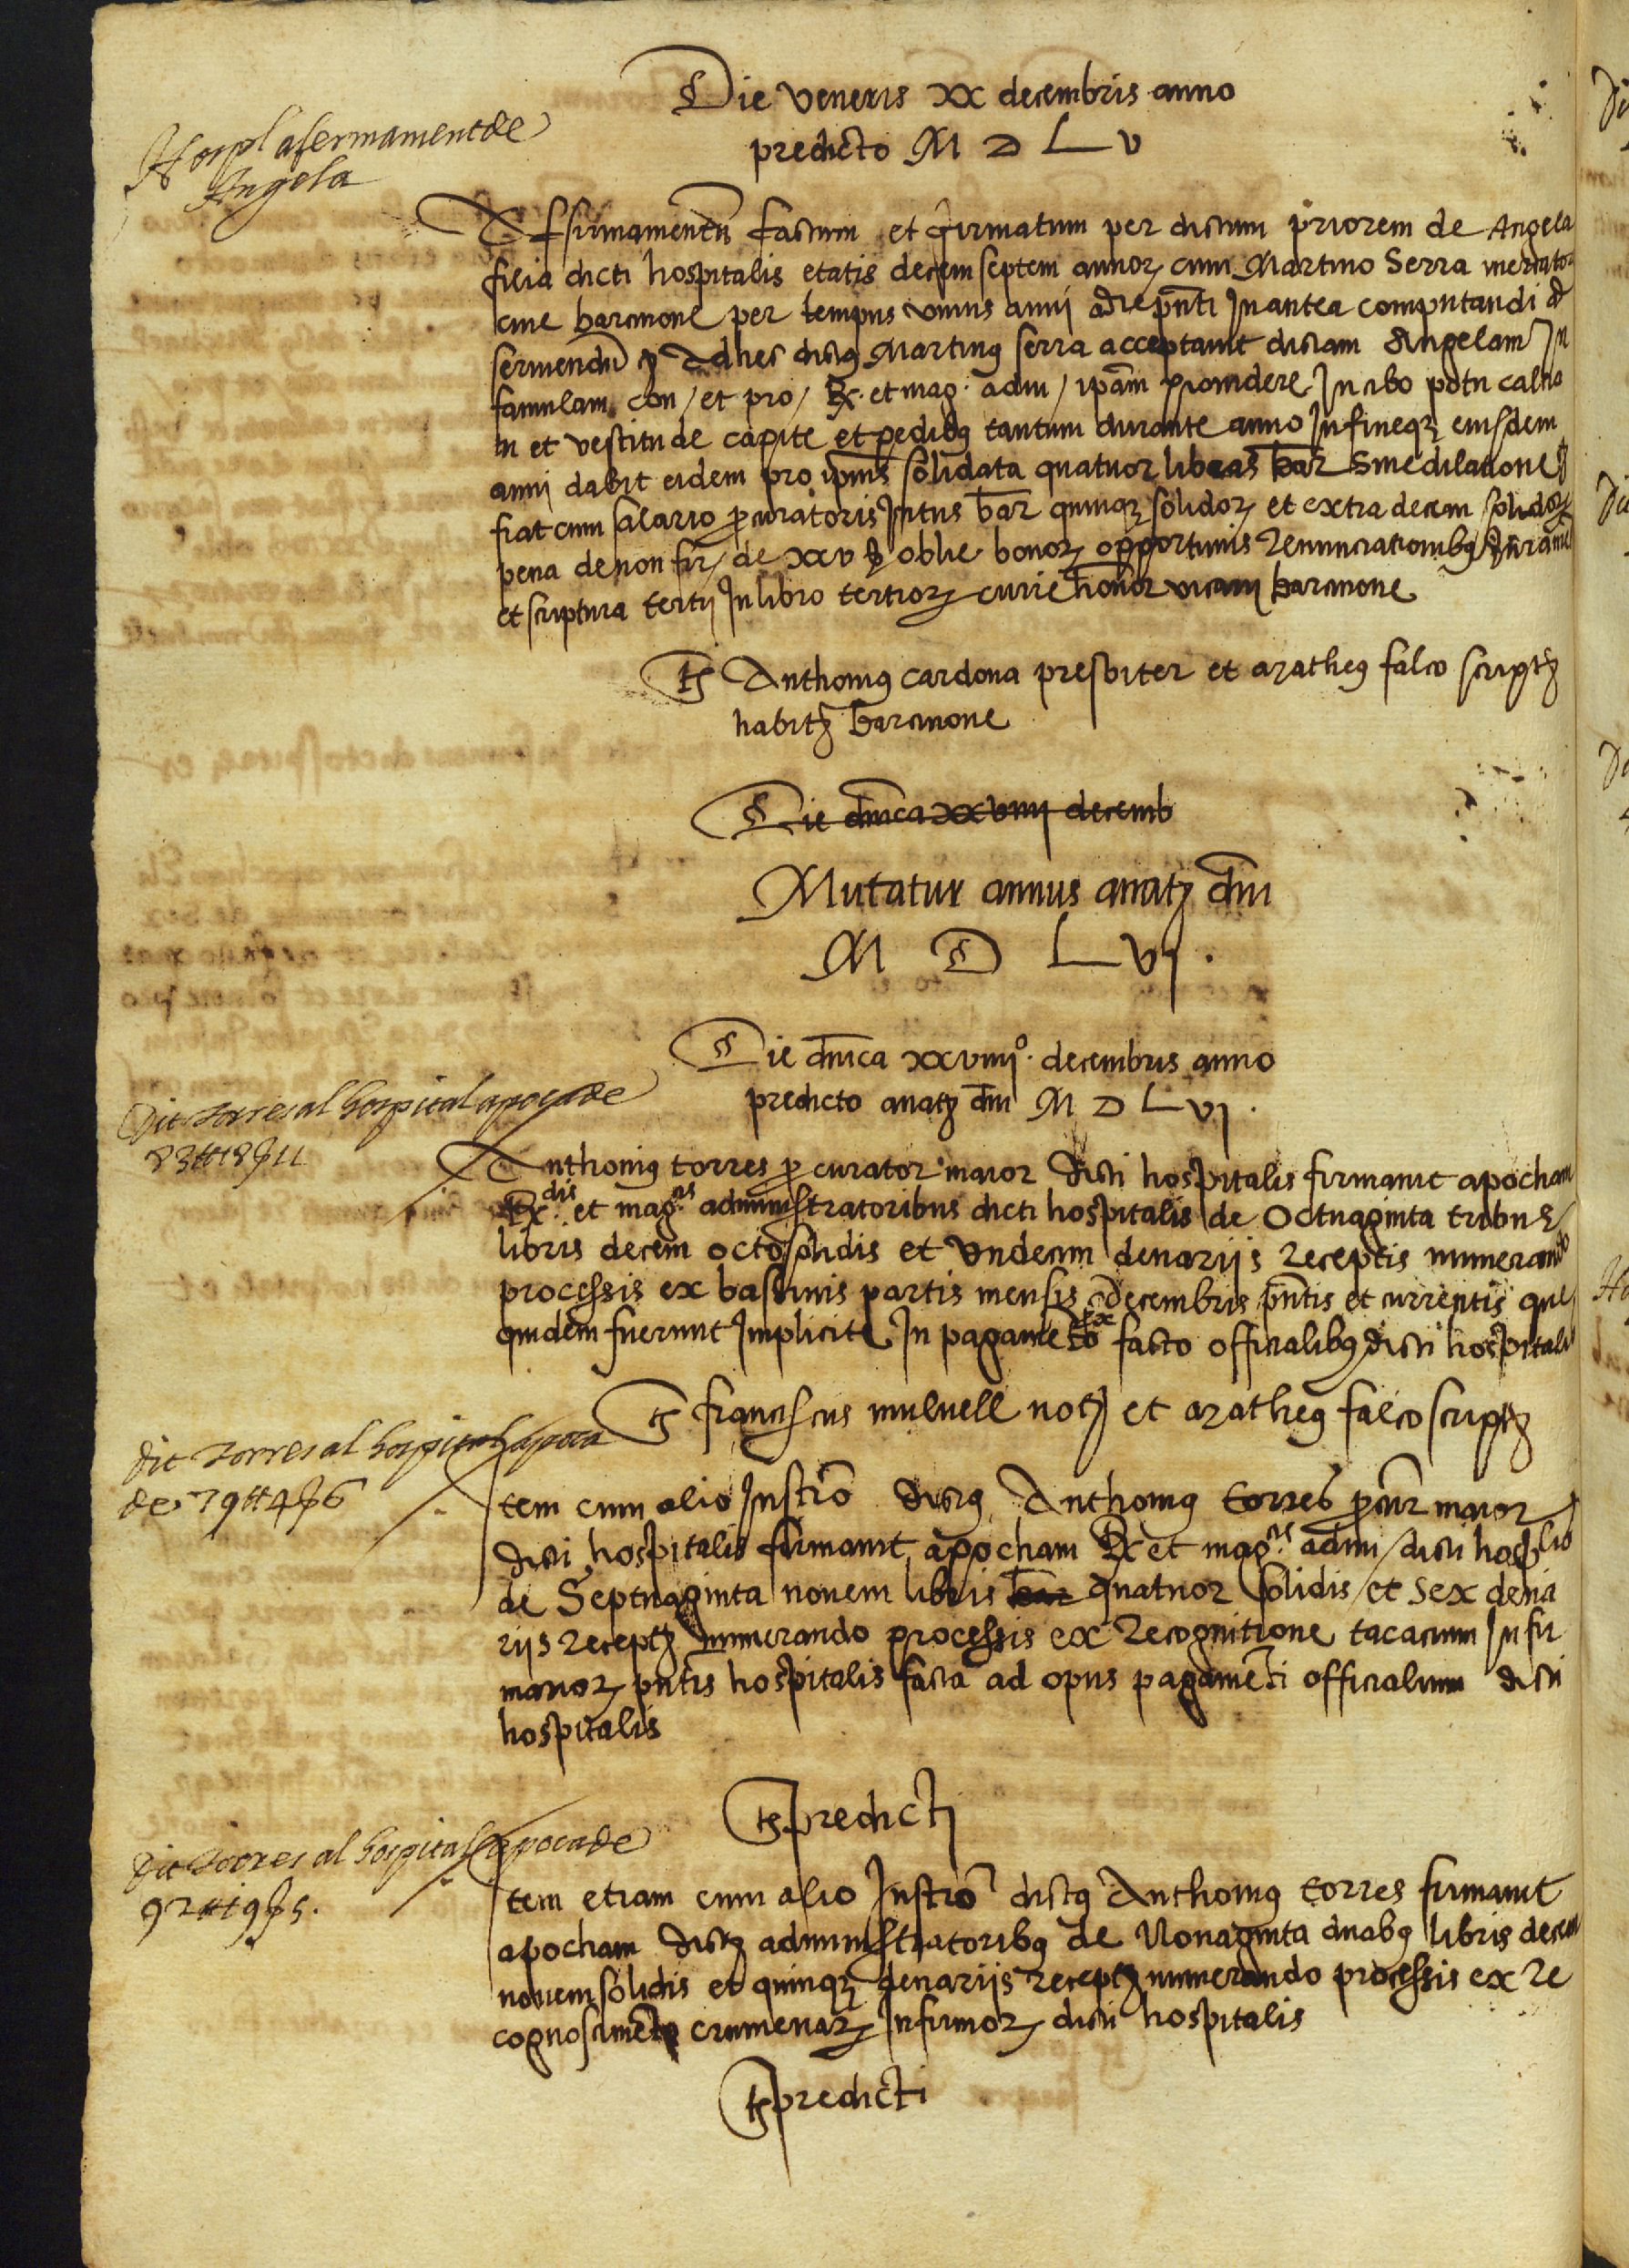 Die veneris xx decembris anno
predicto M D L v
Hospl afermament de
Angela
Affirmamentũ factum et firmatum per dictum priorem de Angela
filia dicti hospitalis etatis decem septem annoꝝ cum Martino Serra mercator
cive barcinone per tempus unius anni a die pñti In antea computandi ad
serviendũ &c Ad hec dictus Martinus serra acceptavit dictam Angelam In
famulam con / et pro / Rx. et mag. adm / ipam providere In cibo potu calcia
tu et vestitu de capite et pedibus tantum durante anno In fineqꝫ eiusdem
anni dabit eidem pro ipius solidata quatuor libras bar sine dilatione &c
fiat cum salario procuratoris Intus bar quinqꝫ solidoꝝ et extra decem solidoꝝ
pena de non fir / de xxv s oblie bonoꝝ opportunis renunciationibus &c Iurame
et scriptura tertij In libro tertioꝝ curie honor vicarij barcinone
ts Anthonius cardona presbiter et matheus falco scriptꝫ
habitꝫ barcinone
Die dnica xxviiij decemb
Mutatur annus a natꝫ dni
M D L vj .
Die dnica xxviiijº. decembris anno
predicto a natꝫ dni M D L vj .
Dit torres al hospital apoca de
83 ₶ 18 ß 11
Anthonius torres procurator maior dicti hospitalis firmavit apocham
Rx.dis et mag.cis administratoribus dicti hospitalis de Octuaginta tribus
libris decem octo solidis et undecim denariis receptis numerando
processis ex bassinis partis mensis decembris pñtis et currentis que
quidem fuerunt Implicite In pagameto ex facto officialibus dicti hospitalis
ts franciscus mulnell notꝫ et matheus falco scriptꝫ
dit torres al hospital apoca
de 79 ₶ 4 ß 6
Item cum alio Instro dictus Anthonius torres procur maior
dicti hospitalis firmavit apocham Rx et mag.cis adm / dicti hosplis
de Septuaginta novem libris bar quatuor solidis et sex dena
riis receptꝫ numerando processis ex recognitione tacacium Infir
marioꝝ pñtis hospitalis facta ad opus pagameti officialium dicti
hospitalis
ts predicti
Dit torres al hospital apoca de
92 ₶ 19 ß 5.
Item etiam cum alio Instro dictus Anthonius torres firmavit
apocham dictꝫ administratoribus de Nonaginta duabus libris decem
novem solidis et quinqꝫ denariis receptꝫ numerando processis ex re
cognoscimeto crumenaꝝ Infirmoꝝ dicti hospitalis
ts predicti